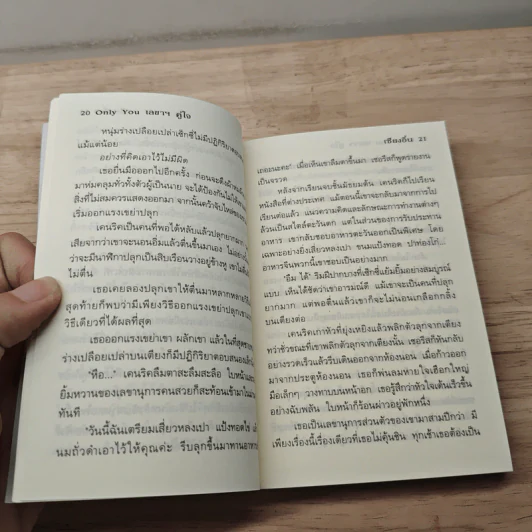 20 Only You เลขาฯ คู่ใจ
หนุ่มร่างเปลือยเปล่าเซ็กซี่ไม่มีปฏิกิริยาตอบ
แม้แต่น้อย
อย่างที่คิดเอาไว้ไม่มีผิด
เธอยื่นมือออกไปอีกครั้ง ก่อนจะดึงผ้าห่ม
มาห่มคลุมทั่วทั้งตัวผู้เป็นนาย จะได้ป้องกันไม่ให้
สิ่งที่ไม่สมควรแสดงออกมา จากนั้นคว้าจับไหล่
เริ่มออกแรงเขย่าปลุก
เคนริคเป็นคนที่พอได้หลับแล้วปลุกยากมาก
เสียจากว่าเขาจะนอนอิ่มแล้วตื่นขึ้นมาเอง ไม่อย่าง
ว่าจะมีนาฬิกาปลุกเป็นสิบเรือนวางอยู่ข้างหู เขาไม่
ไม่ตื่น
เธอเคยลองปลุกเขามาหลากหลายวิธี
สุดท้ายก็พบว่ามีเพียงวิธีออกแรงเขย่าปลุก
วิธีเดียวที่ได้ผลที่สุด
เธอออกแรงเขย่าเขา ผลักเขา แล้วในที่สุด
ร่างเปลือยเปล่าบนเตียงก็มีปฏิกิริยาตอบสนอง
"หือ..." เคนริคลืมตาสะลืมสะลือ ใบหน้าและ
ยิ้มหวานของเลขานุการคนสวยก็สะท้อนเข้ามาใน
ทันที
"วันนี้ฉันเตรียมเสี่ยวหลงเปา แป้งทอดไข่
นมถั่วดำเอาไว้ให้คุณค่ะ รีบลุกขึ้นมาทานอาหาร
เซียงอิ๋น 21
เถอะนะคะ" เมื่อเห็นเขาลืมตาขึ้นมา เซเรีสก็พูดรายงาน
เป็นจรวด
หลังจากเรียนจบชั้นมัธยมต้น เคนริคก็ไปเรียน
หนังสือที่ต่างประเทศ แม้ตอนนี้เขาจะกลับมาจากการไป
เรียนต่อแล้ว แนวความคิดและลักษณะการทำงานต่างๆ
ล้วนเป็นสไตล์ตะวันตก แต่ในส่วนของการรับประทาน
อาหาร เขากลับชอบอาหารตะวันออกเป็นพิเศษ โดย
เฉพาะอย่างยิ่งเสี่ยวหลงเปา ขนมแป้งทอด ปาท่องโก๋...
อาหารจีนพวกนี้เขาชอบเป็นอย่างมาก
"อืม ได้" ริมฝีปากบางที่เซ็กซี่แย้มยิ้มอย่างสมบูรณ์
แบบ เห็นได้ชัดว่าเขาอารมณ์ดี แม้เขาจะเป็นคนที่ปลุก
ยากมาก แต่พอตื่นแล้วเขาก็จะไม่นอนเกลือกกลิ้ง
บนเตียงต่อ
เคนริคเกาหัวที่ยุ่งเหยิงแล้วพลิกตัวลุกจากเตียง
ทว่าชั่วขณะที่เขาพลิกตัวลุกจากเตียงนั้น เซเรีสก็หันกลับ
อย่างรวดเร็วแล้วรีบเดินออกจากห้องนอน เมื่อก้าวออก
มาจากประตูห้องนอน เธอก็พ่นลมหายใจเฮือกใหญ่
มือเล็กๆ วางทาบบนหน้าอก เธอรู้สึกว่าหัวใจเต้นเร็วขึ้น
อย่างฉับพลัน ใบหน้าก็ร้อนผ่าวอยู่พักหนึ่ง
เธอเป็นเลขานุการส่วนตัวของเขามาสามปีกว่า มี
เพียงเรื่องนี้เรื่องเดียวที่เธอไม่คุ้นชิน ทุกเช้าเธอต้องเป็น